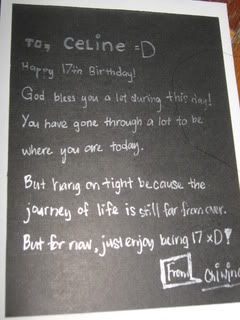 TO, celine =D
Happy 17th Birthday!
God bless you a lot during this day!
You have gone through a lot to be
where you are today.
But hang on tight because the
journey of life is still far from over.
But for now, just enjoy being 17 xD!
From